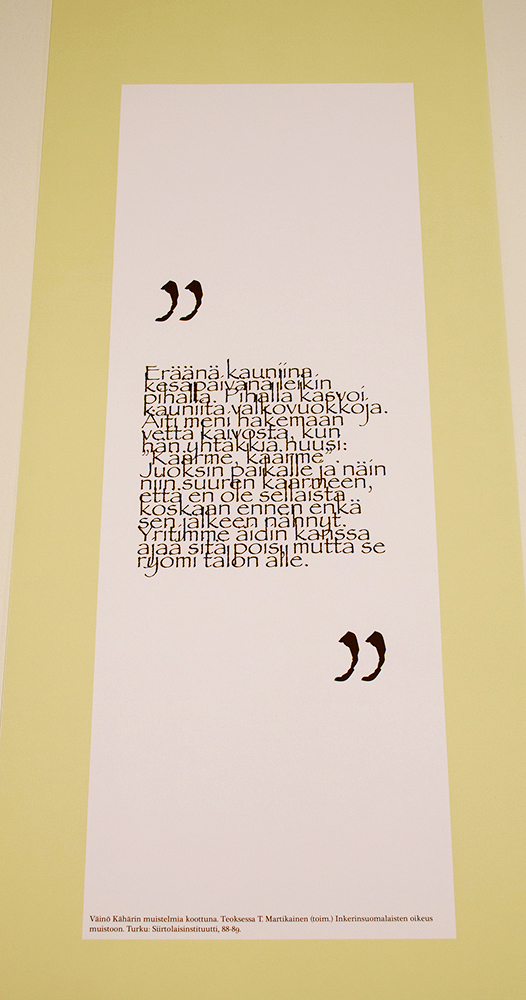 ”
Eräänä kauniina
kesäpäivänä leikin
pihalla. Pihalla kasvoi
kauniita valkovuokkoja.
Äiti meni hakemaan
vettä kaivosta, kun
hän yhtäkkiä huusi:
”Käärme, käärme”.
Juoksin paikalle ja näin
niin suuren käärmeen,
että en ole sellaista
koskaan ennen enkä
sen jälkeen nähnyt.
Yritimme äidin kanssa
ajaa sitä pois, mutta se
ryömi talon alle.
”
Väinö Kähärin muistelmia koottuna. Teoksessa T. Martikainen (toim.) Inkerinsuomalaisten oikeus
muistoon. Turku: Siirtolaisinstituutti, 88-89.